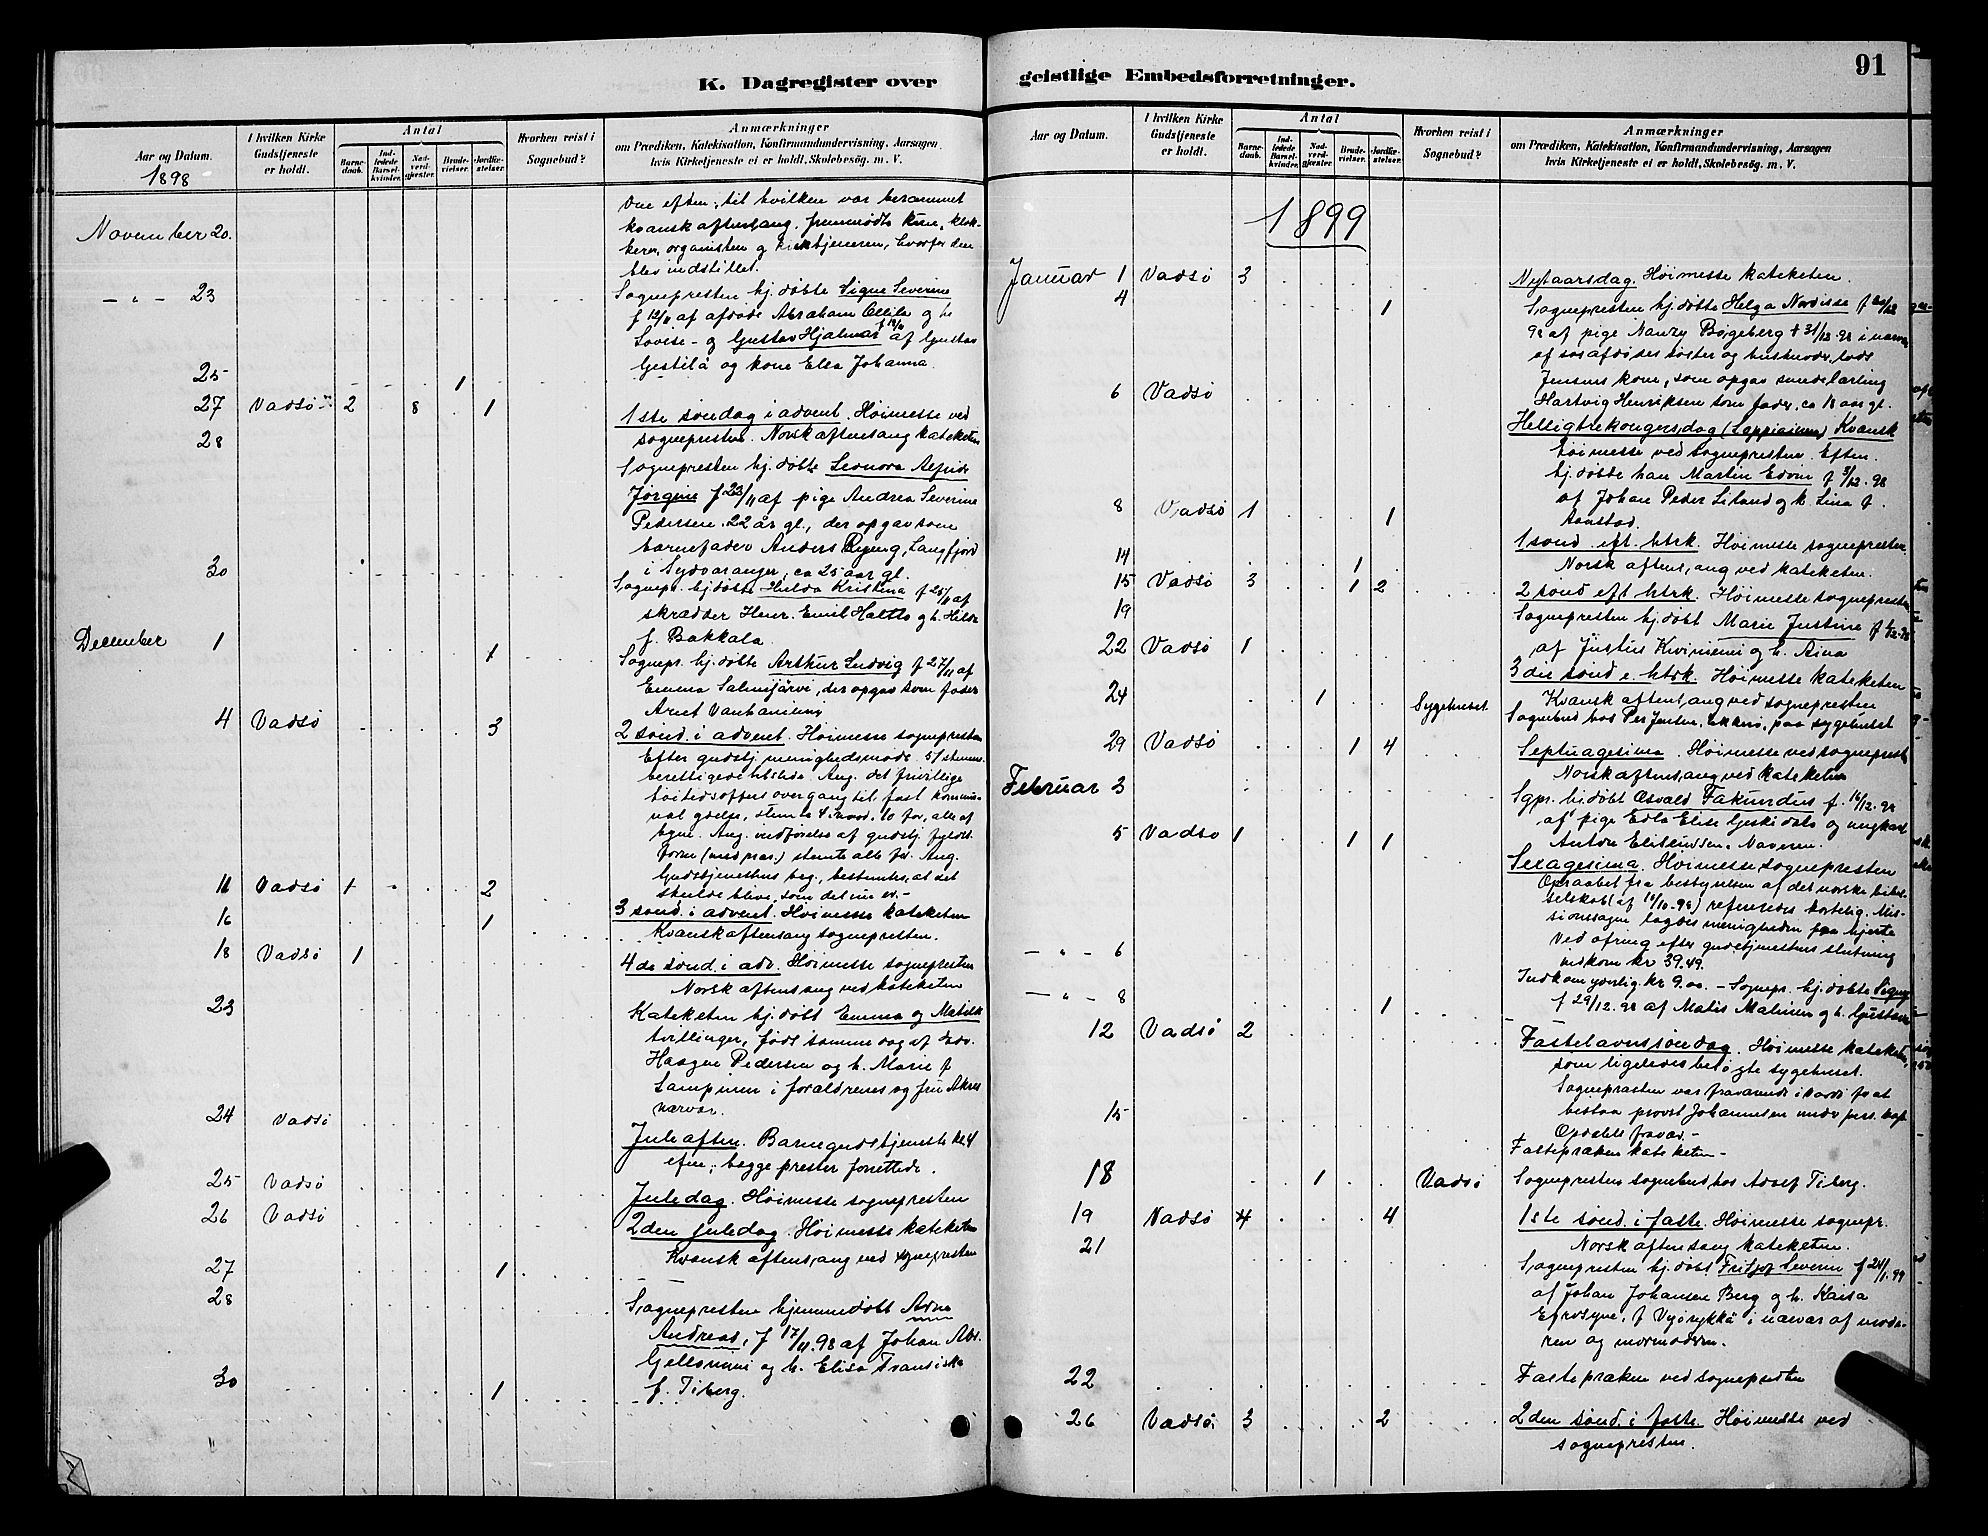 K. Dagregister over
Aar og Datum.
1898
I hvilken Kirke Gudstjeneste er holdt.
Antal
Barnedaab.
Indledede Barselkvinder.
Nadverdgjester.
Brudevielser.
Jordfæstelser.
Hvorhen reist i Sognebud?
Anmærkninger
om Prædiken, Katekisation, Konfirmandundervisning, Aarsagen,
hvis Kirketjeneste ei er holdt, Skolebesög. m. V.
November 20.
til hvilken var berammet
kvansk aftensang, fremmødte kun klok-
keren, organisten og kirketjeneren, hvorfor den
blev indstillet.
— " — 23
Sognepresten hj. døbte Signe Severine
f 12/11 af afdøde Abraham Ollila og h.
Lovise - og Gustav Hjalmar f 19/11 af Gustav
og kone Elsa Johanna
25 1
27 Vadsø 2 8 1
1ste søndag i advent. Høimesse ved
sognepresten. Norsk aftensang kateketen
28
Sognepresten hj. døbte Leonora Alfride
Jørgine f 23/11 af pige Andrea Severine
Pedersen 22 år gl., der opgav som
barnefader Anders Langfjord
i Sydvaranger, ca 25 aar gl.
30
Sognepr. hj. døbte Hulda Kristina f 25/11 af
skrædder Henr. Emil Halto og h. Hilda
f. Bakkala
December 1 1
Sognepr. hj. døbte Arthur Ludvig f 27/11 af
Emma Salmijärvi, der opgav som fader
4 Vadsø 3
2 sønd. i advent. Høimesse sognepresten
Efter gudstj. menighedsmøde. 51 stemme-
berettigede tilstede. Ang. det frivillige
høitidsoffers overgang til fast kommu-
nal ydelse, stemte 4 imod, 10 for, alle af
byen. Ang. indførelse af gudstj.
stemte alle for. Ang.
Gudstjenesternes beg., bestemtes, at det
skulde blive, som det nu er. -
11 Vadsø 1 2
3 sønd. i advent. Høimesse kateketen
16 1
Kvansk aftensang sognepresten.
18 Vadsø 1
4de sønd. i adv. Høimesse sognepresten
Norsk aftensang ved kateketen
23
Kateketen hj. døbt Emma og Matilde
tvillinger, født samme dag af
Haagen Pedersen og h. Marie f
Lampinen i forældrenes og
nærvær.
24 Vadsø
Juleaften. Barnegudstjeneste kl. 4
efm., begge prester forrettede.
25 Vadsø
Juledag. Høimesse sognepresten
26 Vadsø
2den juledag. Høimesse kateketen
Kvansk aftensang ved sognepresten
27 1
28
Sognepresten hjemmedøbt Arne
Andreas, f 17/11.98 af Johan Abr.
og h. Elisa Fransiska
f. Tiberg.
30 1
geistlige Embedsforretninger.
91
Aar og Datum.
I hvilken Kirke Gudstjeneste er holdt.
Antal
Barnedaab.
Indledede Barselkvinder.
Nadverdgjester.
Brudevielser.
Jordfæstelser.
Hvorhen reist i Sognebud?
Anmærkninger
om Prædiken, Katekisation, Konfirmandundervisning, Aarsagen
hvis Kirketjeneste ei er holdt, Skolebesög. m. V.
1899
Januar 1 Vadsø 3
Nytaarsdag. Høimesse kateketen
4 1
Sognepresten hj. døbte Helga Nordisse f 20/12
98 af pige Nanzy Bøgeberg + 31/12 98 i nærvær
af søster og husmoder,
Jensens kone, som opgav
Hartvig Henriksen som fader, ca 18 aar gl.
6 Vadsø
Helligtrekongersdag (Loppiainen) Kvansk
høimesse ved sognepresten. Eftm.
hj. døbte han Martin Edvin f 3/12.98
af Johan Peder Siland og h. Lina f.
Aanstad.
8 Vadsø 1 1
1 sønd. eft. htrk. Høimesse sognepresten
Norsk aftensang ved kateketen.
14 1
15 Vadsø 3 1 2
2 sønd eft htrk. Høimesse sognepresten
19
Sognepresten hj. døbt Marie Justine
af Justus Kiviniemi og h. Aina
22 Vadsø 1
3die sønd e. htrk. Høimesse kateketen
Kvansk aftensang ved sognepresten
24 1 Sygehuset
Sognebud hos Per Jensen, paa sygehuset
29 Vadsø 1 4
Septuagesima. Høimesse ved sogneprest
Norsk aftensang ved kateketen
Februar 3
Sgpr. hj. døbt Osvald Fakundus f. 14/12.98
af pige Edla Elise og ungkarl
5 Vadsø 1 1 1
Sexagesima. Høimesse sognepresten
Opraabet fra bestyrelsen af det norske bibel-
selskab (af 10/10.98) refereredes kortelig. Mis-
sionssagen lagdes menigheden paa hjerte
Ved ofring efter gudstjenestens slutning
indkom kr 39.49.
— " — 6
Indkom yderlig. kr 9.00. - Sognepr. hj. døbte Signe
f 29/12.98 af Matis Malinen og h. Gustava
— " — 8 1
12 Vadsø 2
Fastelavnssøndag. Høimesse kateketen,
som ligeledes besøgte sygehuset.
Sognepresten var fraværende i Vardø for at
bestaa provst Johannesen under pers. kap
Opdals fravær. -
15
Fasteprædken kateketen -
18 1 Vadsø
Sognepresten sognebud hos Adolf Tiberg.
19 Vadsø 4 4
1ste sønd. i faste. Høimesse sognepr.
Norsk aftensang kateketen.
21
Sognepresten hj. døbt Fritjof Severin f 24/1.99
af Johan Johansen Berg og h. Kaisa
Efrosyne, f i nærvær af mode-
ren og mormoderen.
22
Fasteprædken ved sognepresten
26 Vadsø 3 2
2den sønd. i faste. Høimesse ved
sognepresten.